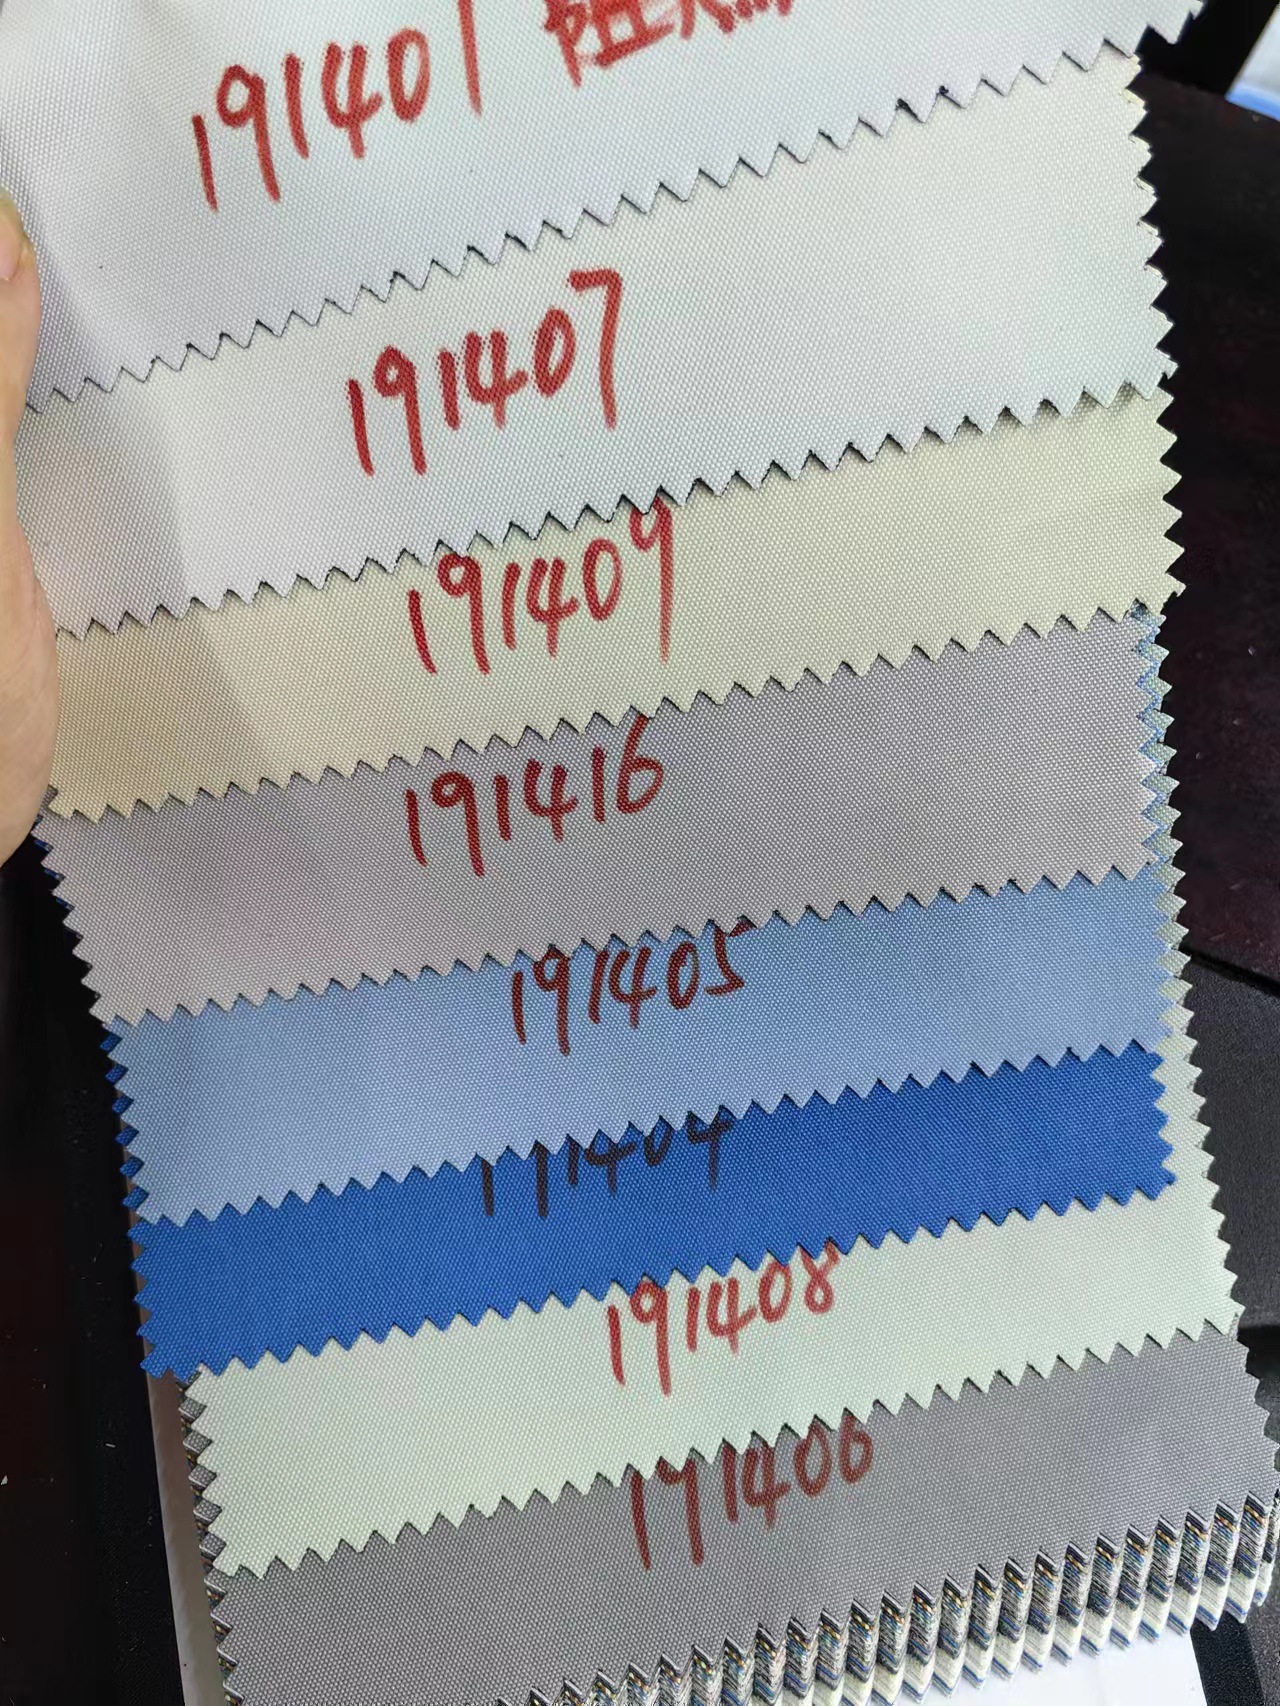 191401 阻燃
191407
191409
191416
191405
191404
191408
191406